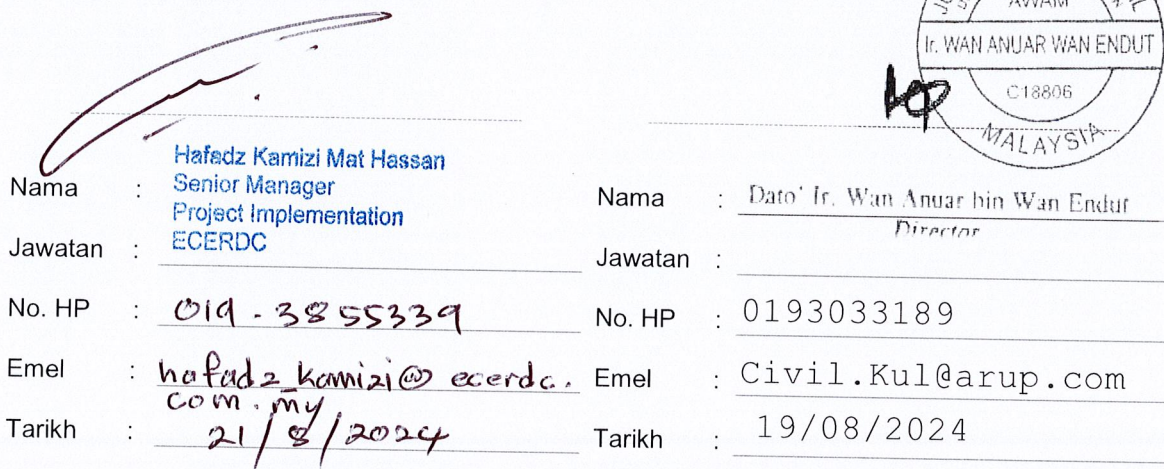 AWAM
Ir. WAN ANUAR WAN ENDUT
C18806
MALAYSIA
Nama :
Hafadz Kamizi Mat Hassan
Senior Manager
Project Implementation
ECERDC
Jawatan :
No. HP : 019 - 3855339
Emel : hafadz_kamizi@ecerdc.
com.my
Tarikh : 21/8/2024
Nama : Dato' Ir. Wan Anuar bin Wan Endut
Director
Jawatan :
No. HP : 0193033189
Emel : Civil.Kul@arup.com
Tarikh : 19/08/2024